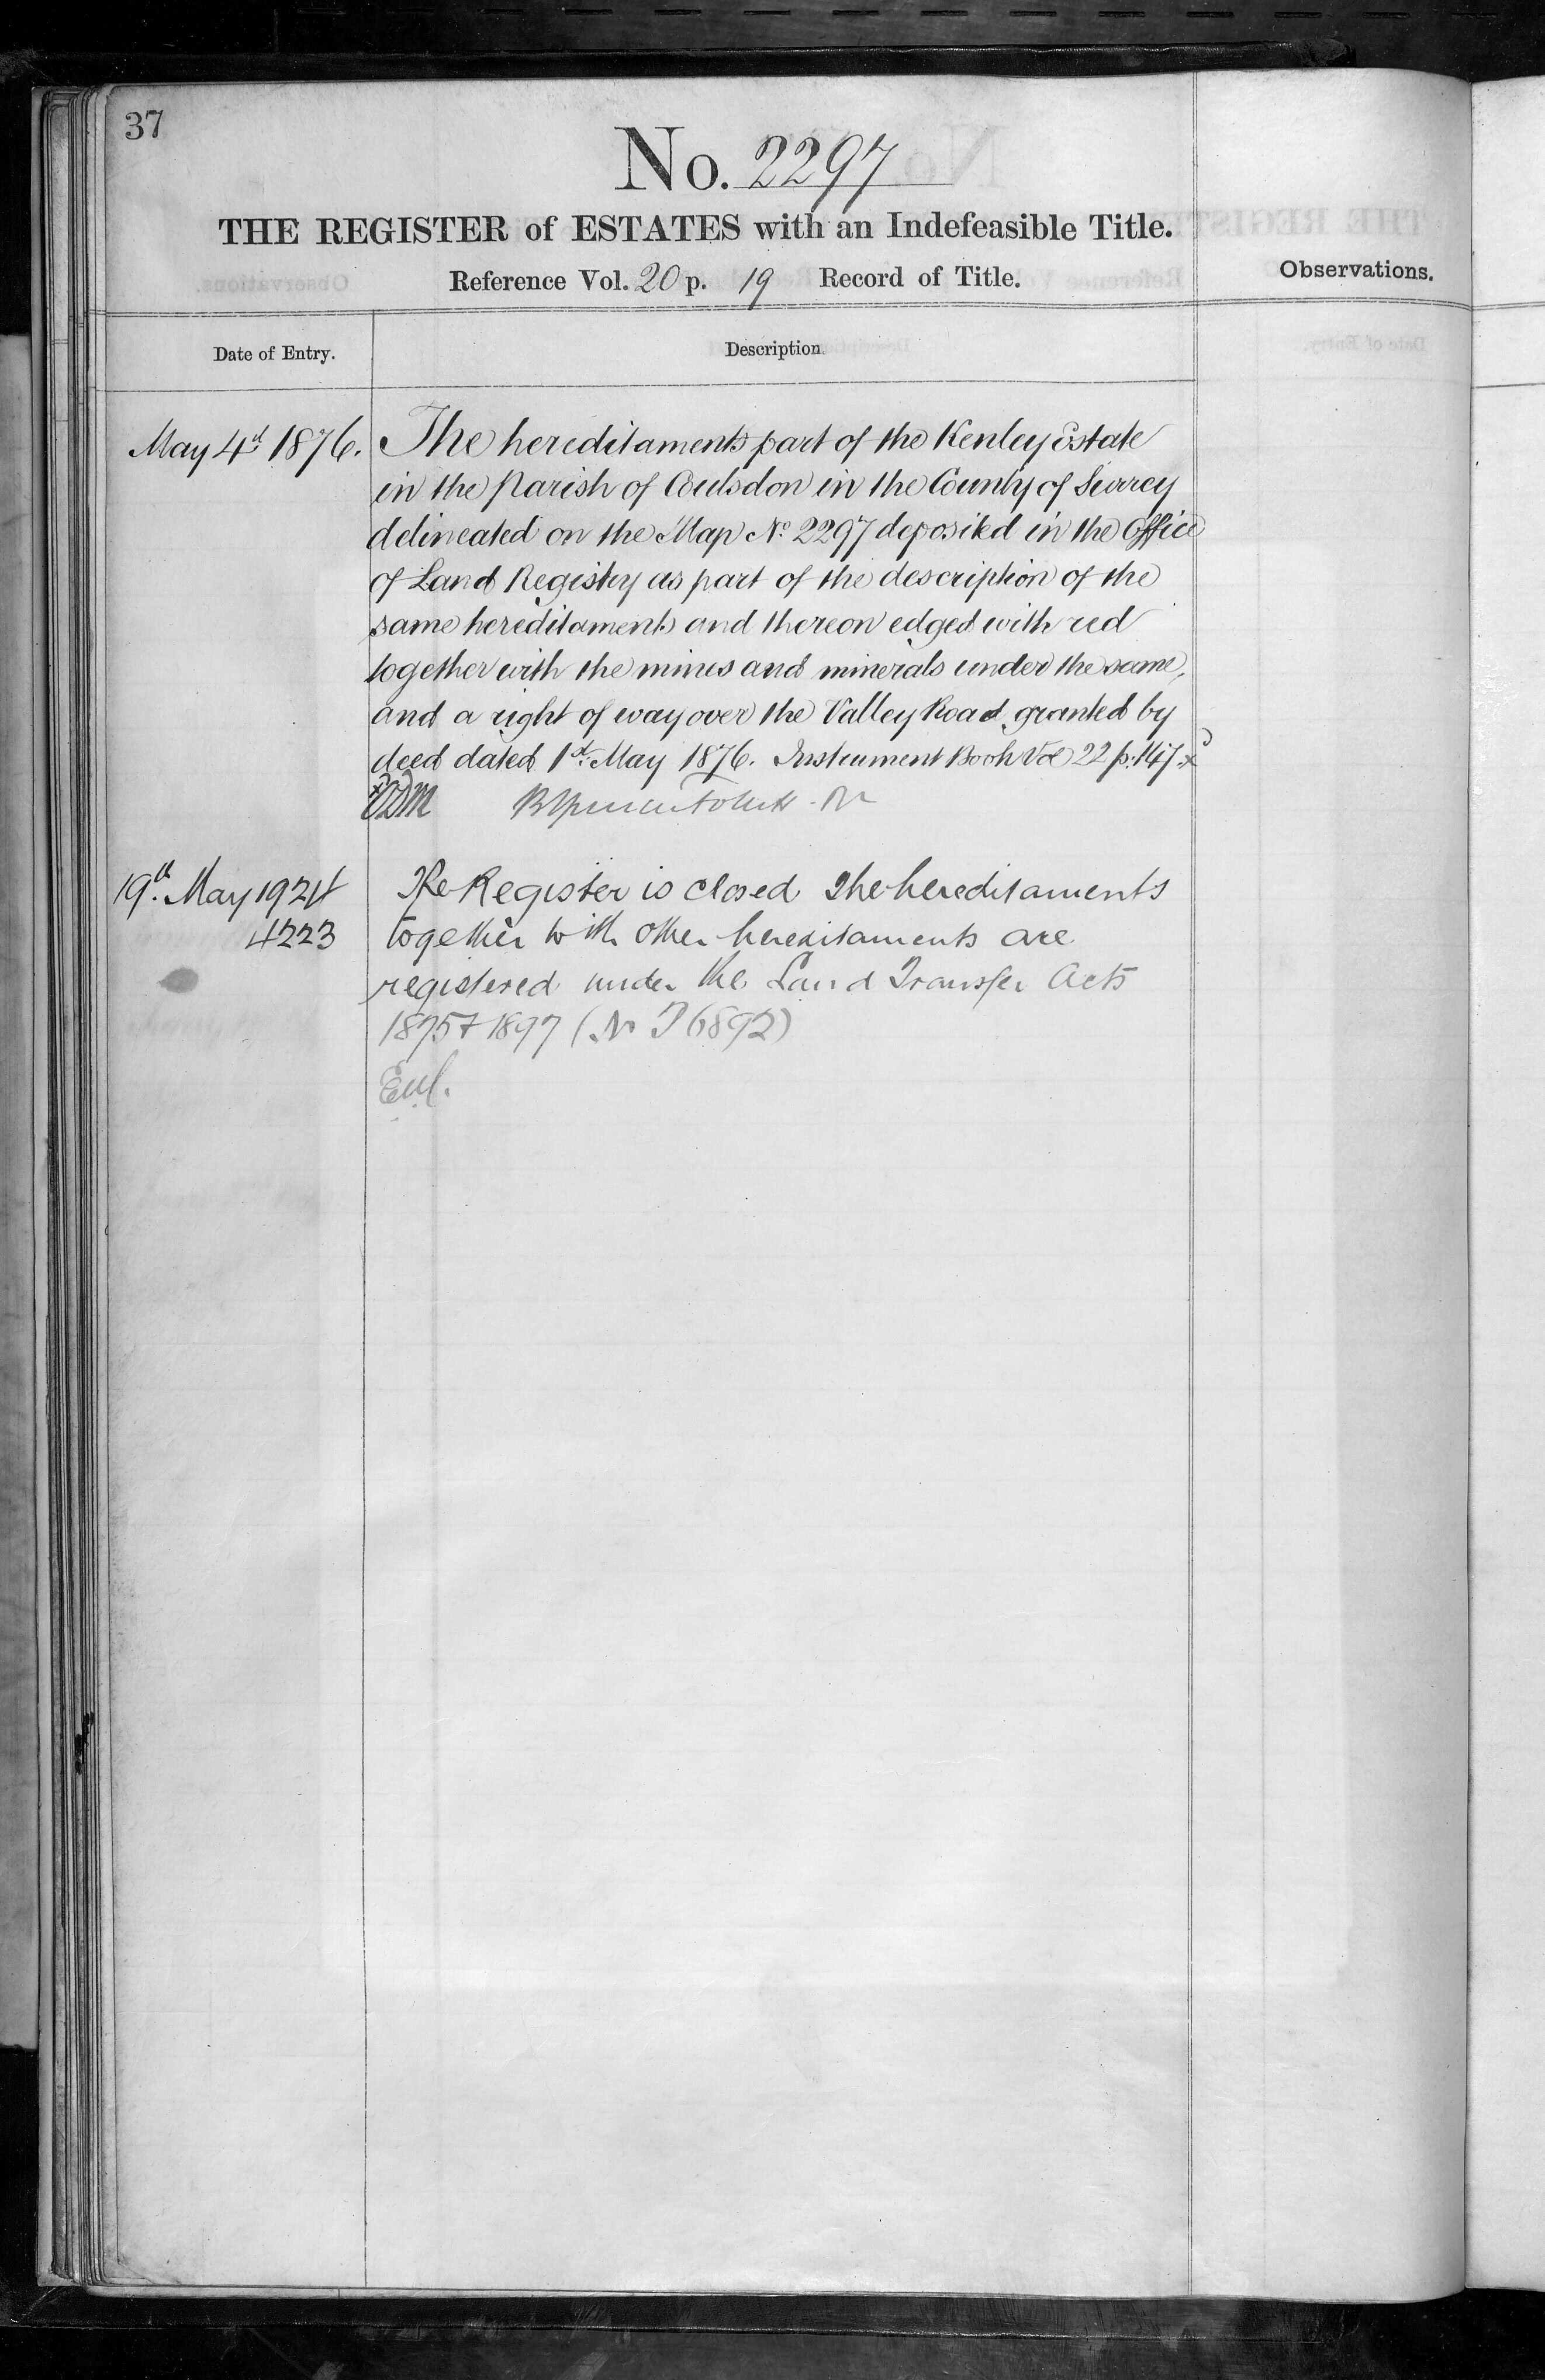 37
No. 2297
THE REGISTER of ESTATES with an Indefeasible Title.
Reference Vol. 20 p. 19 Record of Title.
Observations.
Date of Entry.
Description.
May 4th 1876.
The hereditaments part of the Kenley Estate
in the Parish of Coulsdon in the County of Surrey
delineated on the Map No. 2297 deposited in the Office
of Land Registry as part of the description of the
same hereditaments and thereon edged with red
together with the mines and minerals under the same,
and a right of way over the Valley Road granted by
deed dated 1st May 1876. Instrument Book Vol 22 p. 147. x
19th May 1924
4223
The Register is closed The hereditaments
together with other hereditaments are
registered under the Land Transfer Acts
1875 + 1897 (No P6892)